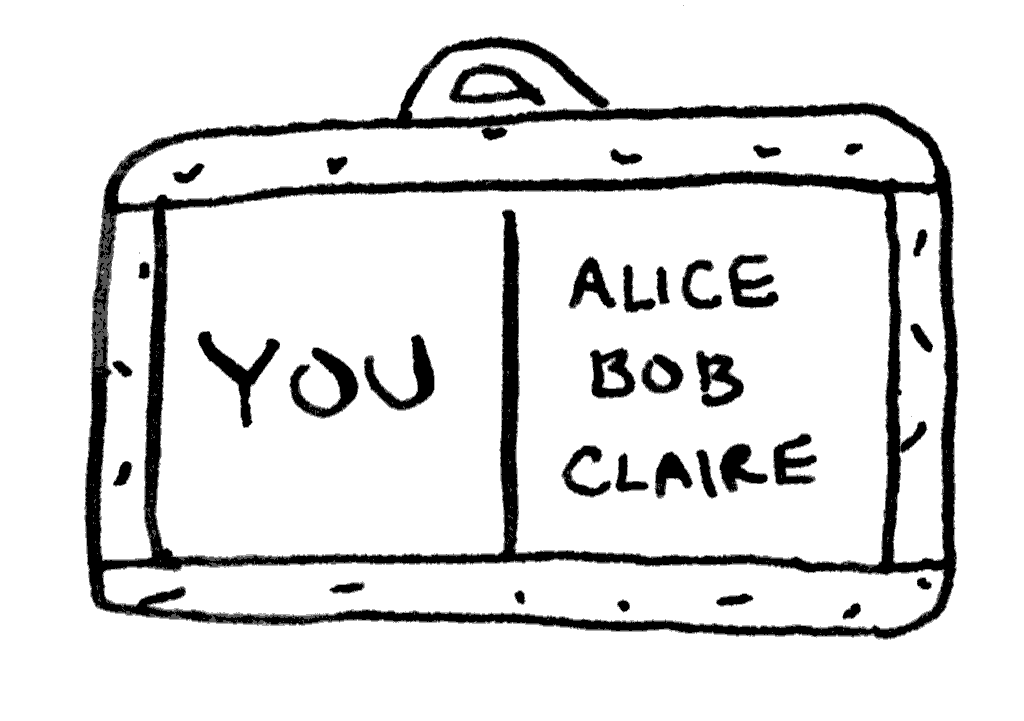 YOU
ALICE
BOB
CLAIRE